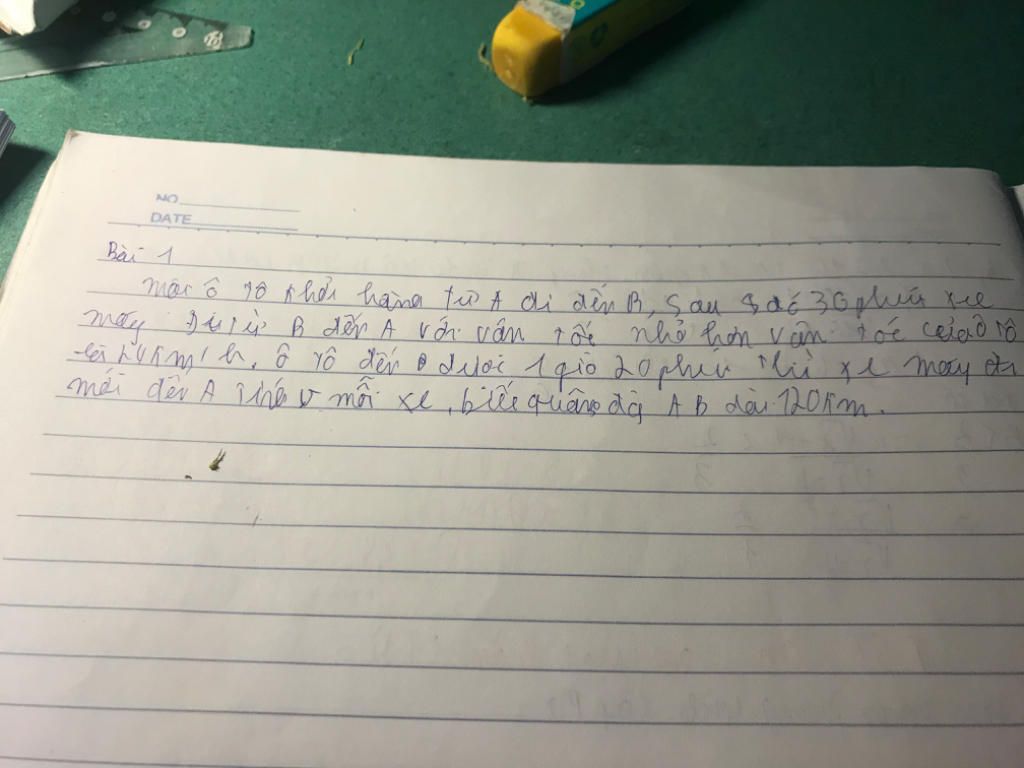 NO
DATE
Bài 1
Một ô tô khởi hàng từ A đi đến B, sau đó 30 phút xe
máy từ B đến A với vận tốc nhỏ hơn vận tốc của ô tô
24km/h. ô tô đến B được 1 giờ 20 phút thì xe máy
mới đến A tính v mỗi xe, biết quãng AB dài 120km.